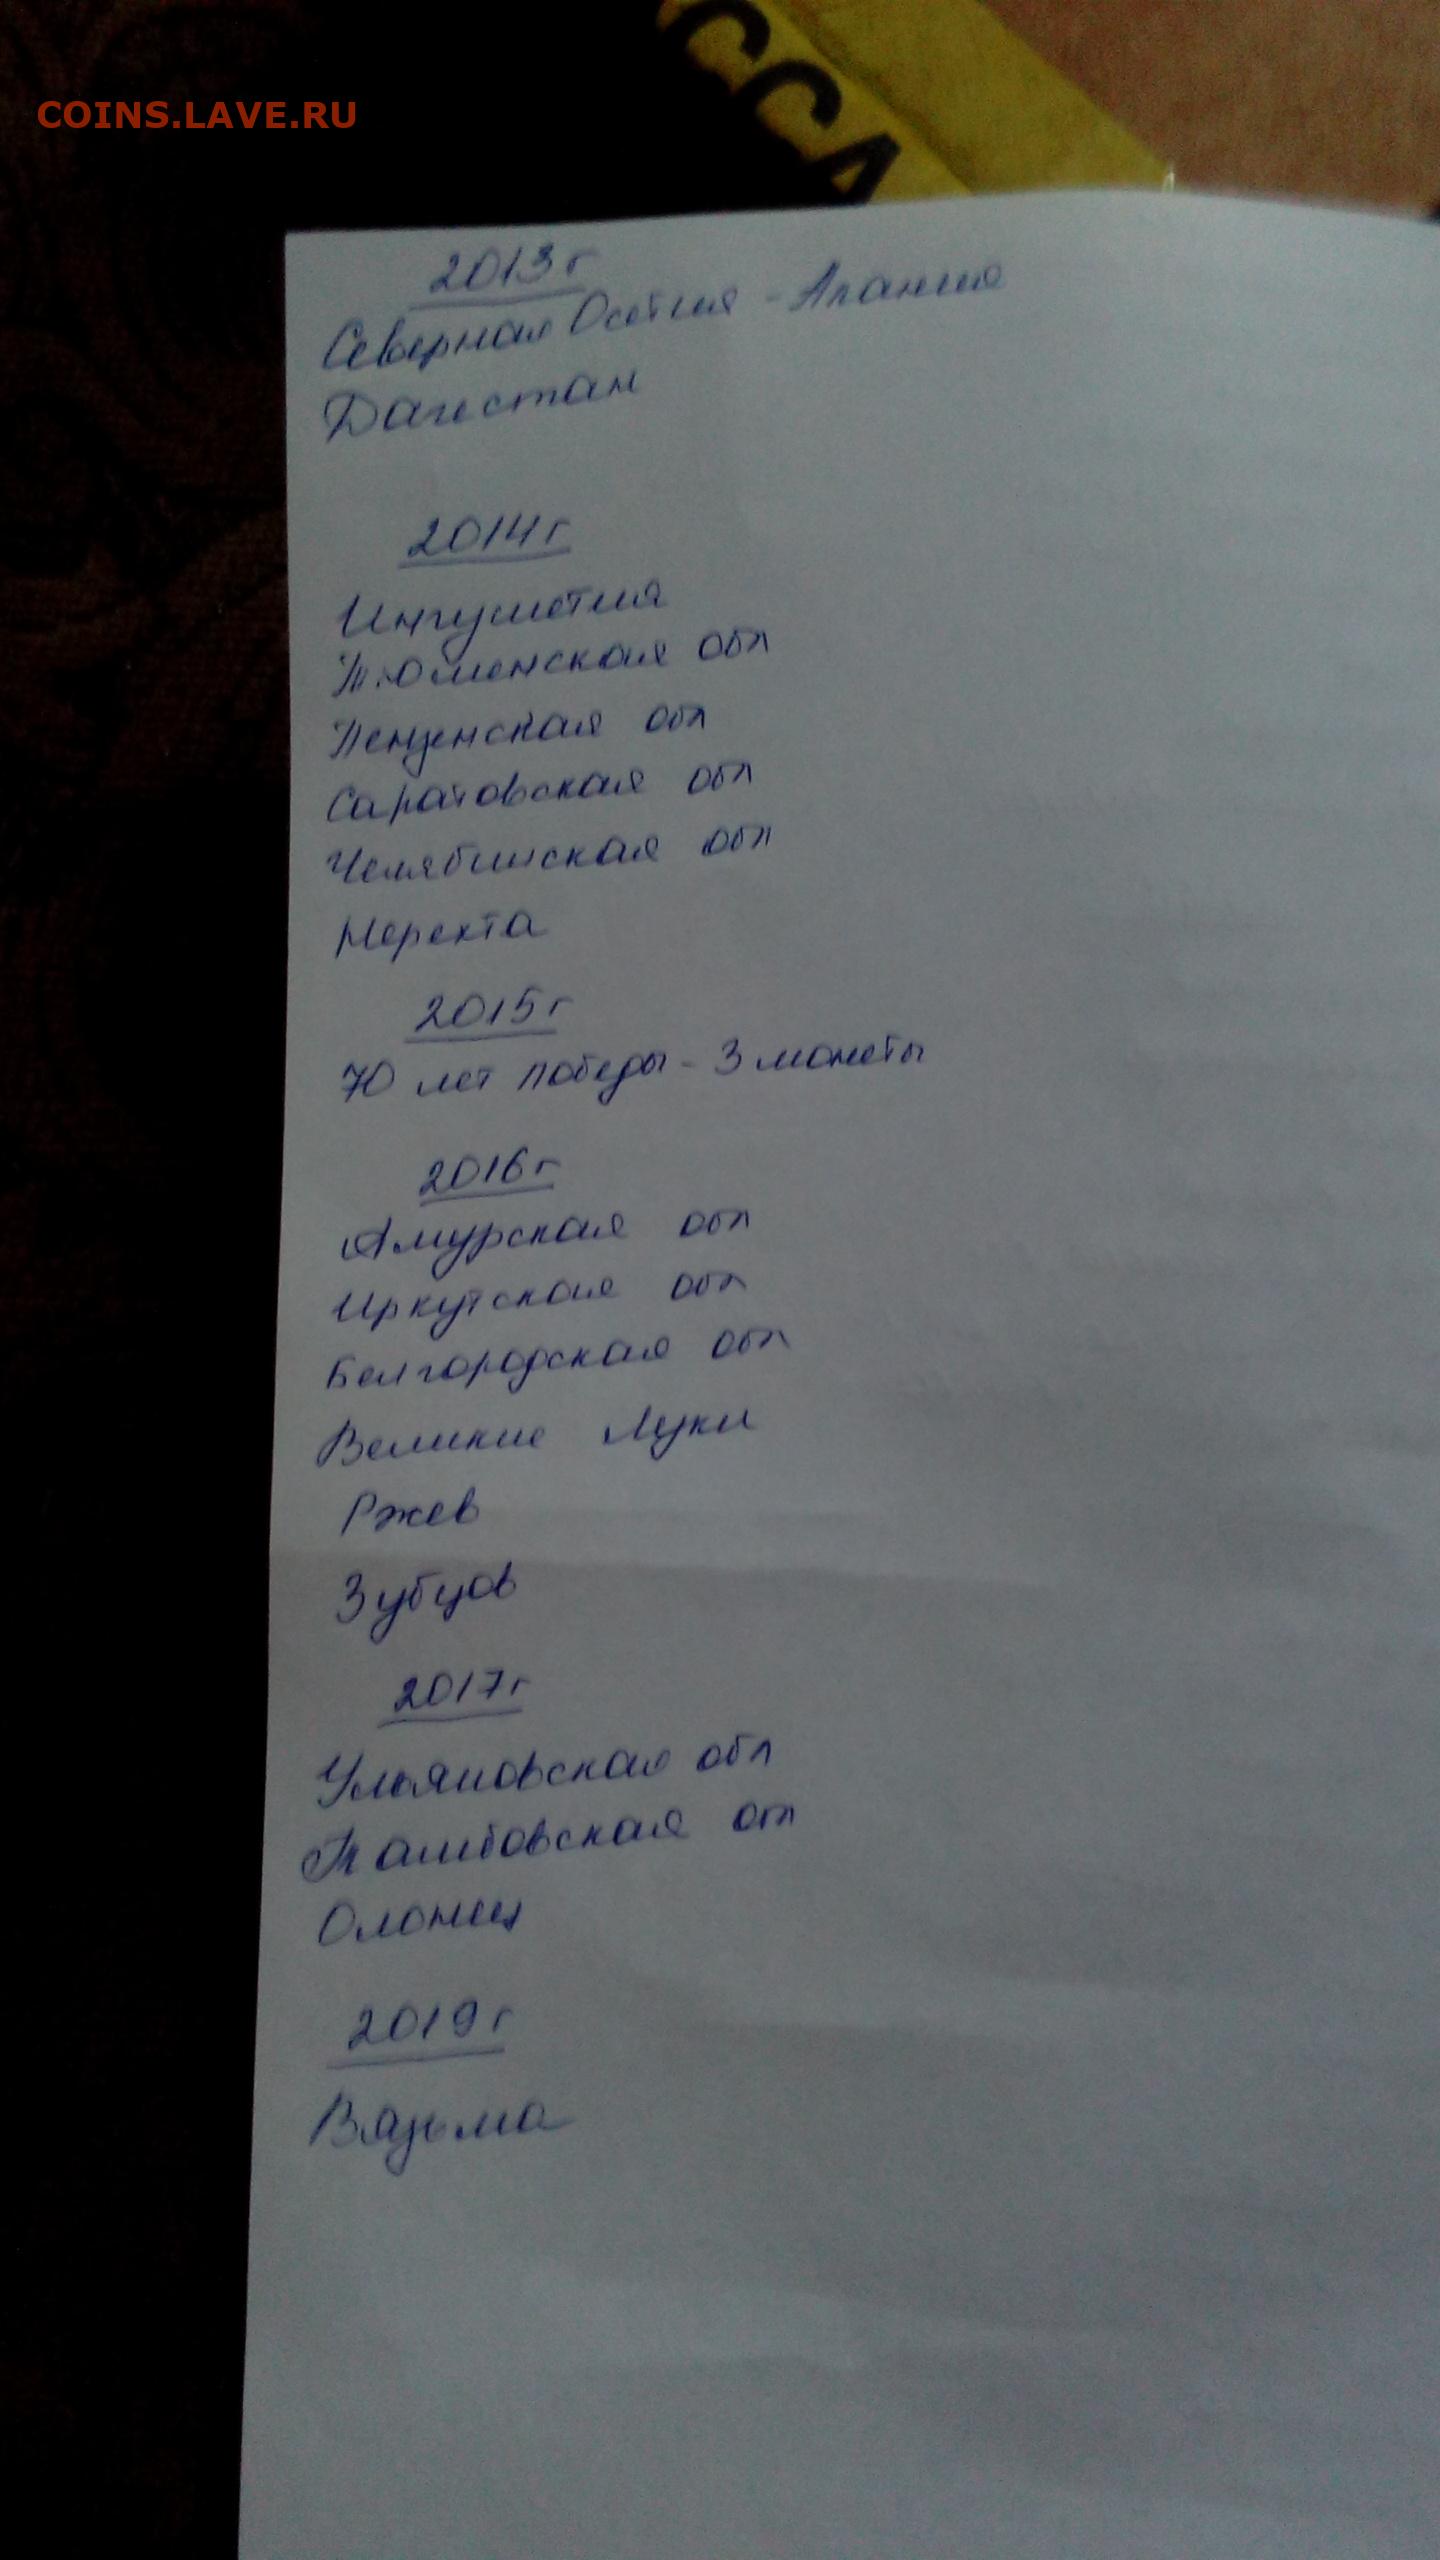 COINS.LAVE.RU
ССА
2013 г
Северная Осетия - Алания
Дагестан
2014 г
Ингушетия
Тюменская обл
Пензенская обл
Саратовская обл
Челябинская обл
Нерехта
2015 г
70 лет победы - 3 монеты
2016 г
Амурская обл
Иркутская обл
Белгородская обл
Великие Луки
Ржев
Зубцов
2017 г
Ульяновская обл
Тамбовская обл
Олонец
2019 г
Вязьма